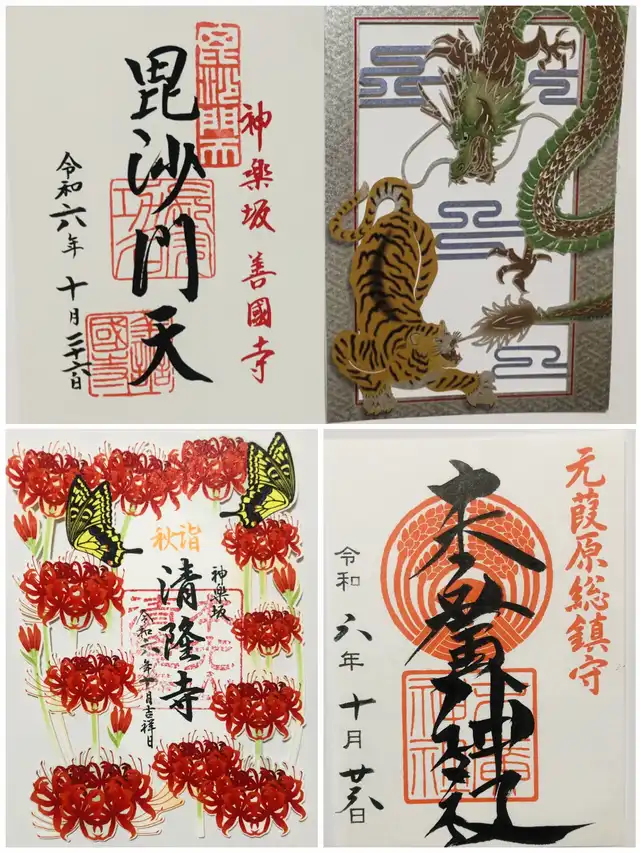 神楽坂 善國寺
毘沙門天
毘沙門天
令和六年 十月二十六日
秋詣
神楽坂
清隆寺
令和六年十月吉祥日
元葭原総鎮守
末廣神社
末廣神社
令和六年十月廿六日